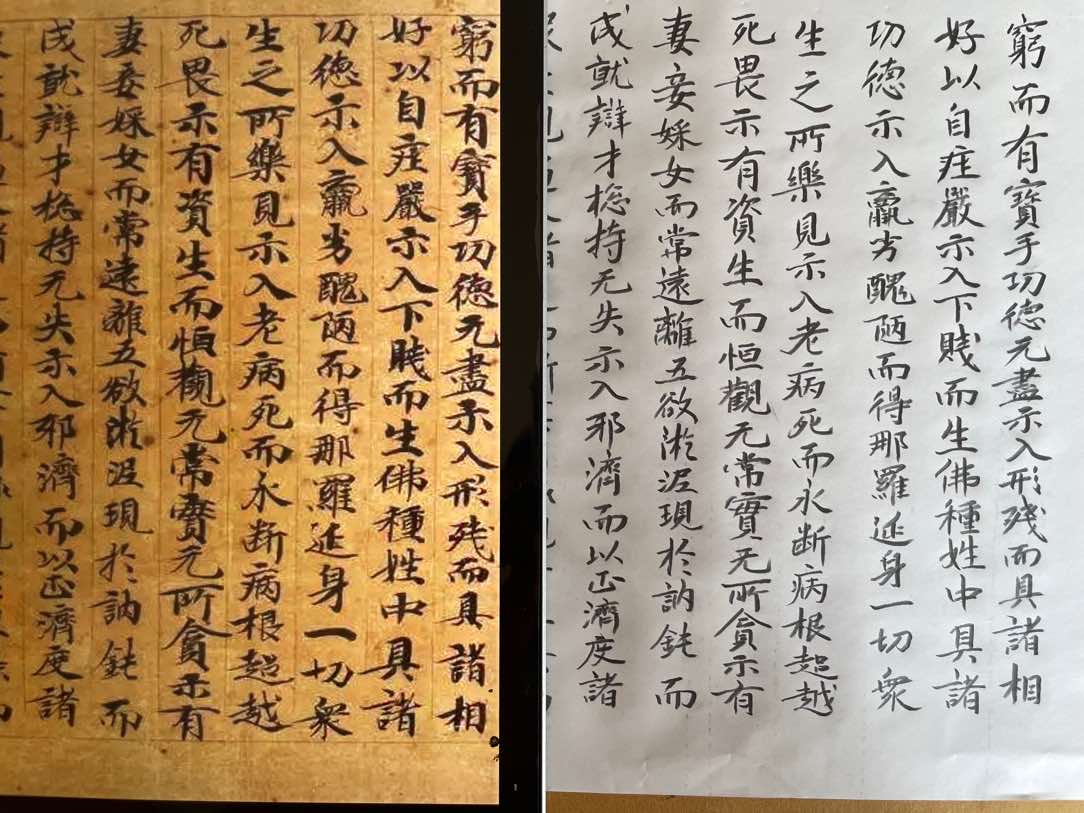 窮而有寶手功德无盡示入形残而具諸相
好以自莊嚴示入下賤而生佛種姓中具諸
功德示入羸劣醜陋而得那羅延身一切衆
生之所樂見示入老病死而永断病根超越
死畏示有資生而恒觀无常實无所貪示有
妻妾婇女而常遠離五欲淤泥現於訥鈍而
成就辯才揔持无失示入邪濟而以正濟度諸
窮而有寶手功德无盡示入形残而具諸相
好以自莊嚴示入下賤而生佛種姓中具諸
功德示入羸劣醜陋而得那羅延身一切衆
生之所樂見示入老病死而永断病根超越
死畏示有資生而恒觀无常實无所貪示有
妻妾婇女而常遠離五欲淤泥現於訥鈍而
成就辯才揔持无失示入邪濟而以正濟度諸